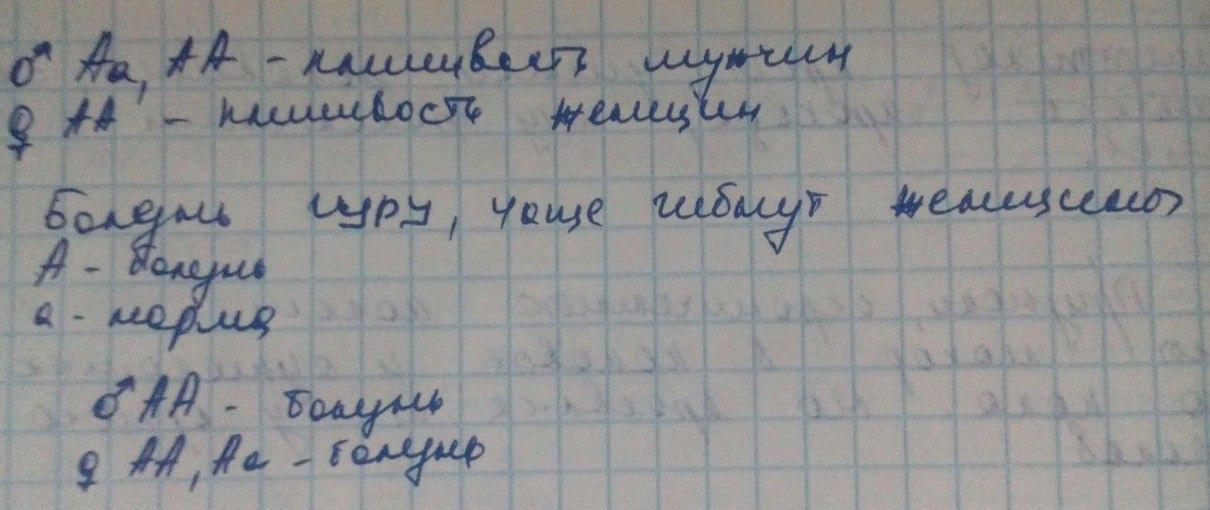 ♂ Аа, АА - плешивость мужчин
♀ АА - плешивость женщин
Болезнь куру, чаще гибнут женщины
А - болезнь
а - норма
♂ АА - болезнь
♀ АА, Аа - болезнь